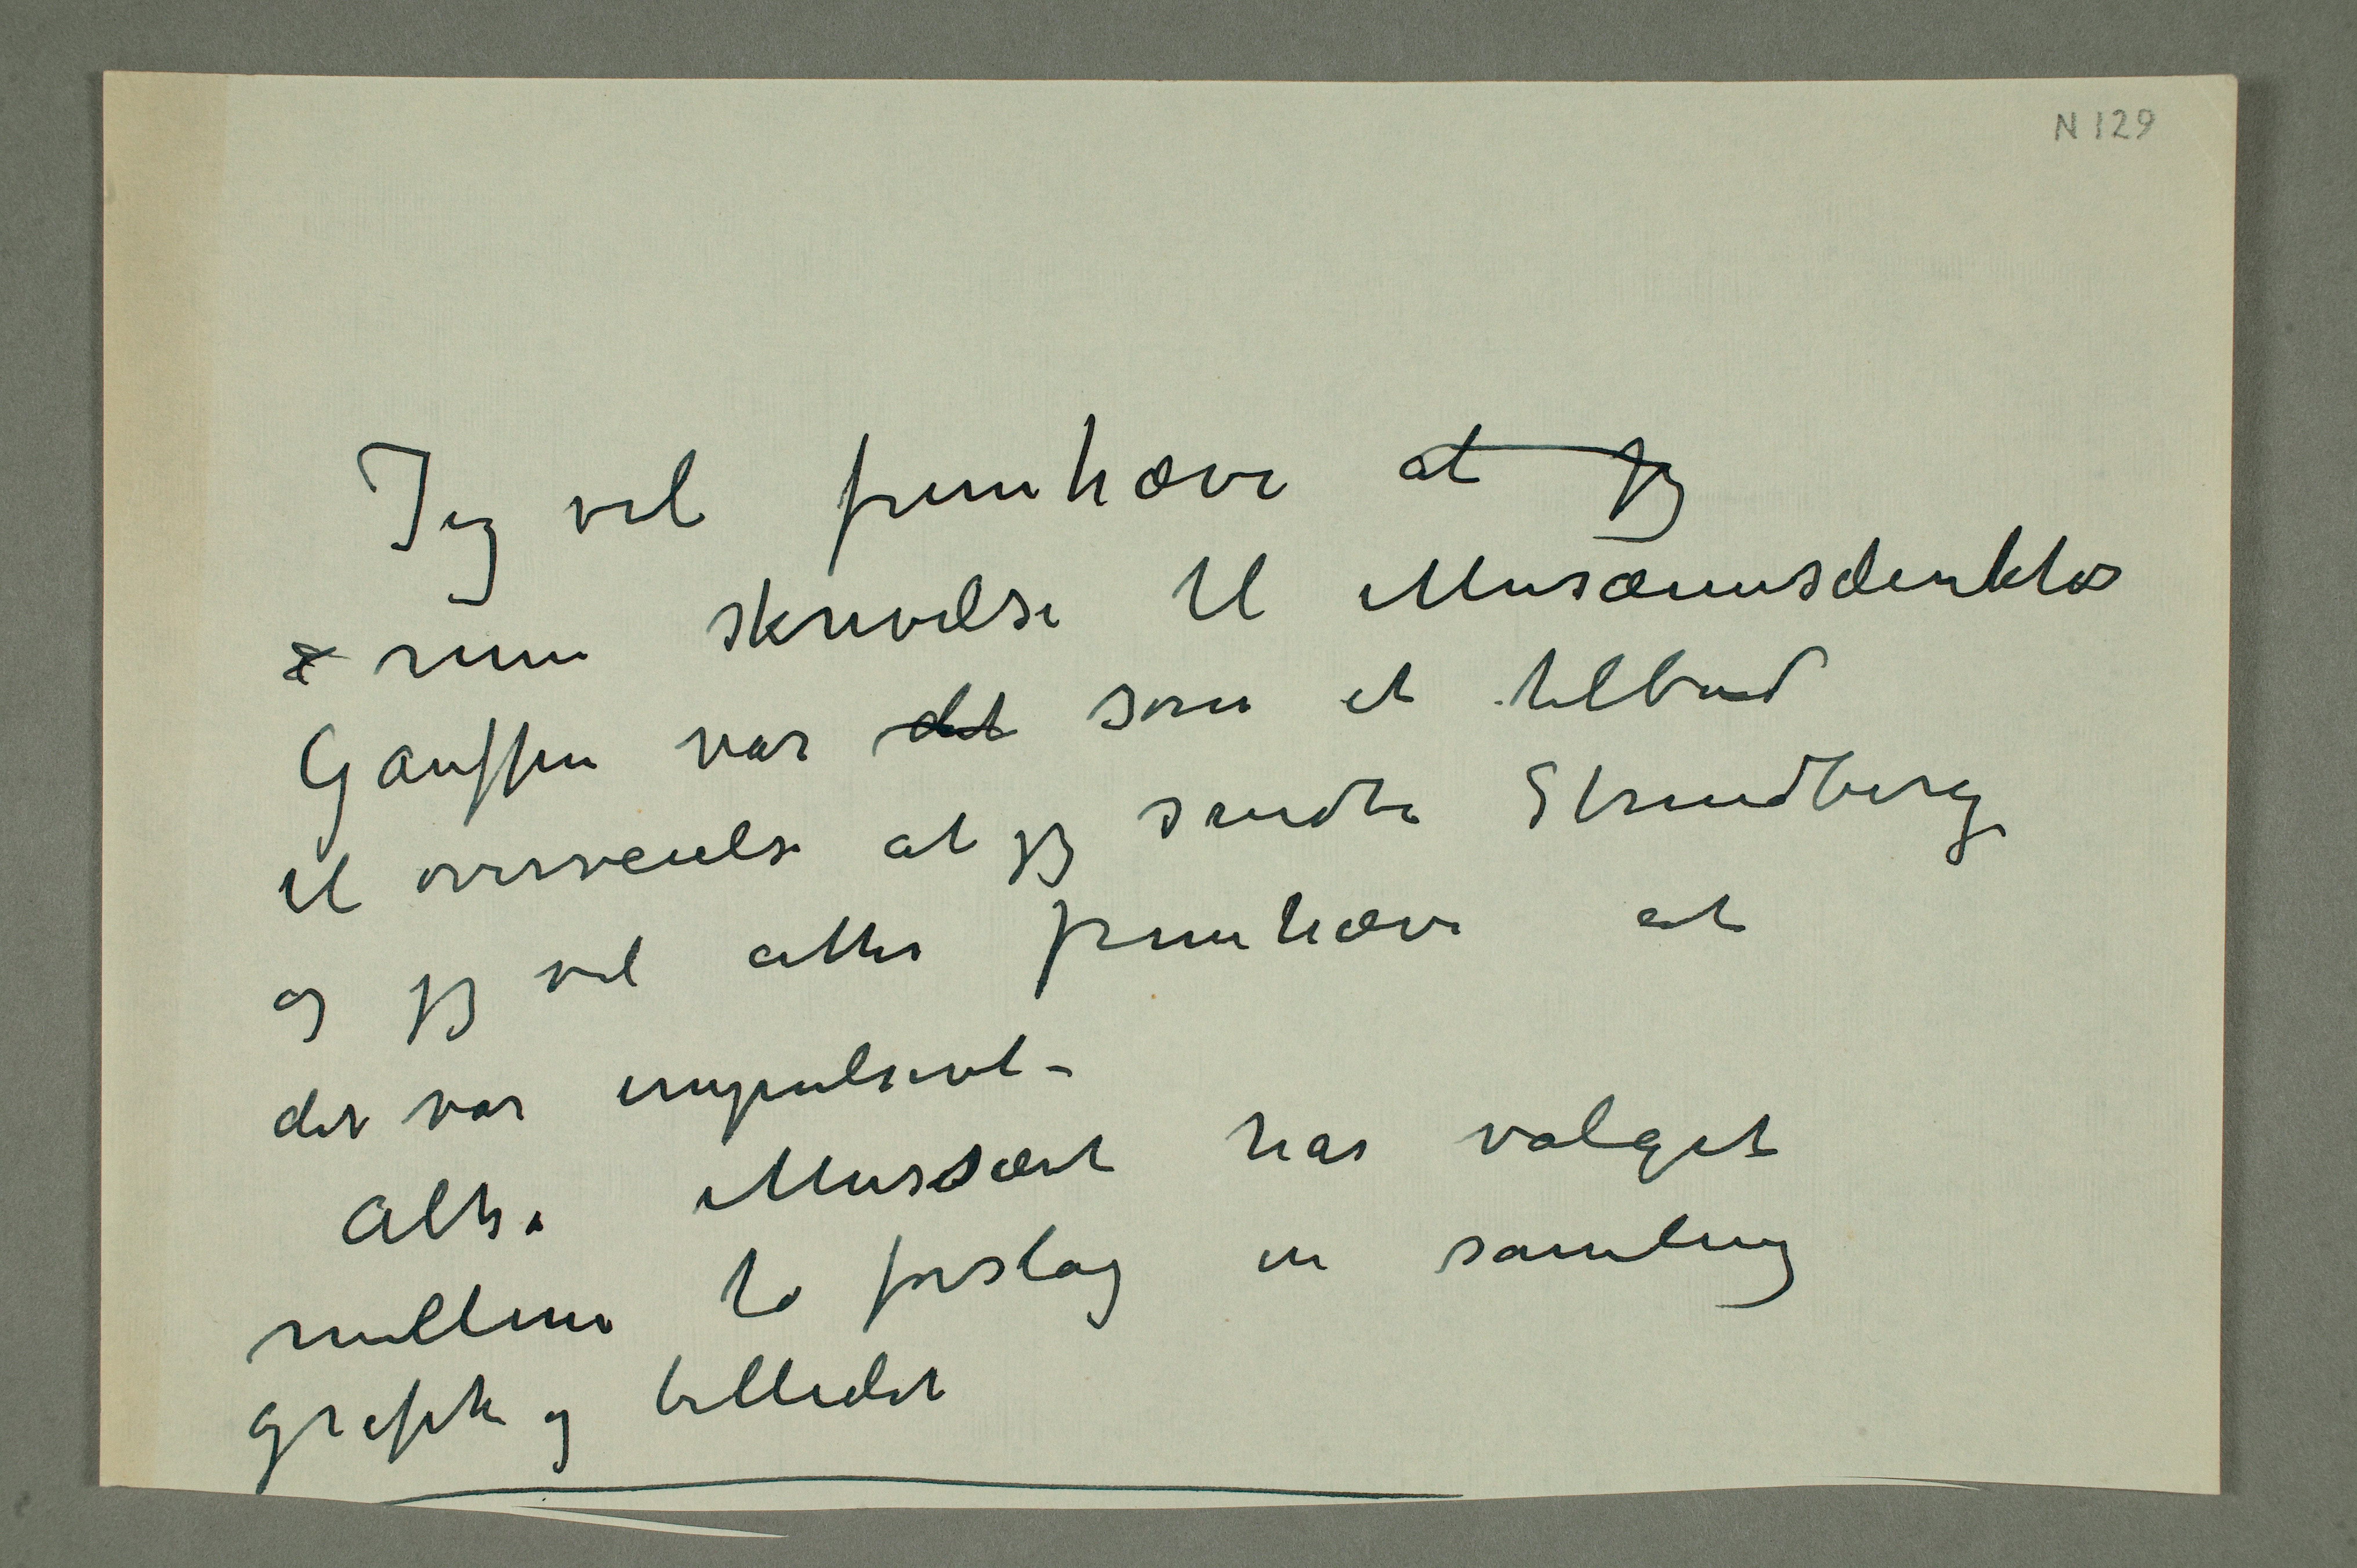 N 129
Jeg vil fremhæve at jeg
min skrivelse til Musæumsdirektør
Gauffin var det som et tilbud
til overveielse at jeg sendte Strindberg
og jeg vil atter fremhæve at
det var impulsivt –
Altså Mussæet har valget
mellem to forslag en samling
grafik og billedet